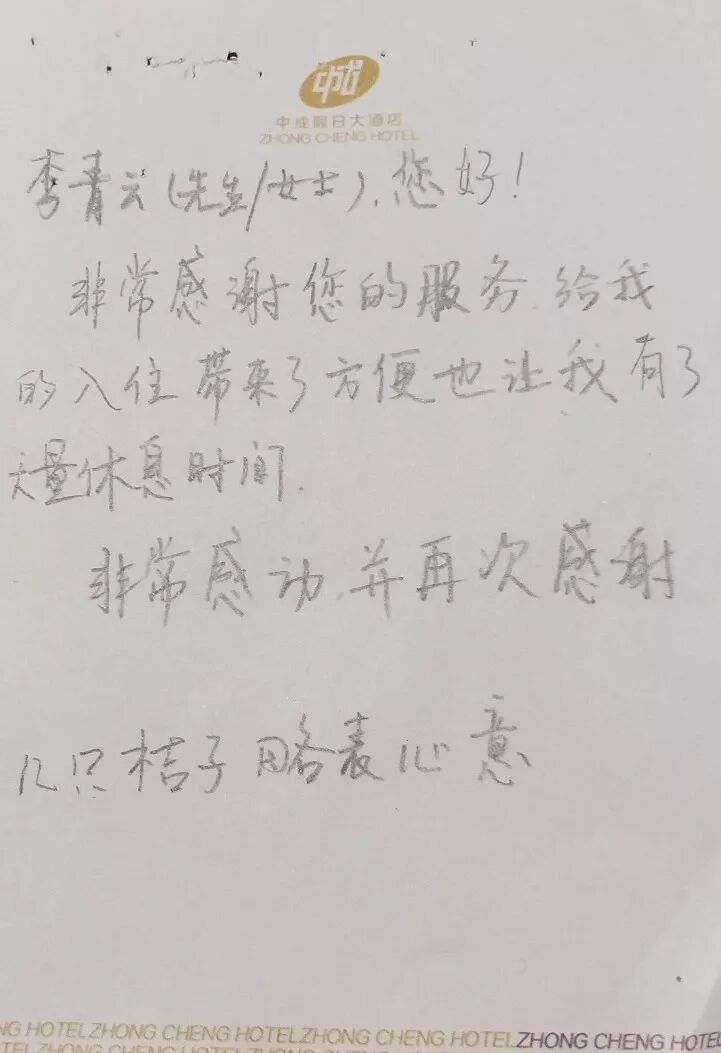 中成
中成假日大酒店
ZHONG CHENG HOTEL
李青云(先生/女士),您好!
非常感谢您的服务.给我
的入住带来了方便也让我有了
大量休息时间.
非常感动.并再次感谢
几只桔子略表心意
NG HOTELZHONG CHENG HOTELZHONG CHENG HOTELZHONG CHENG HOTEL